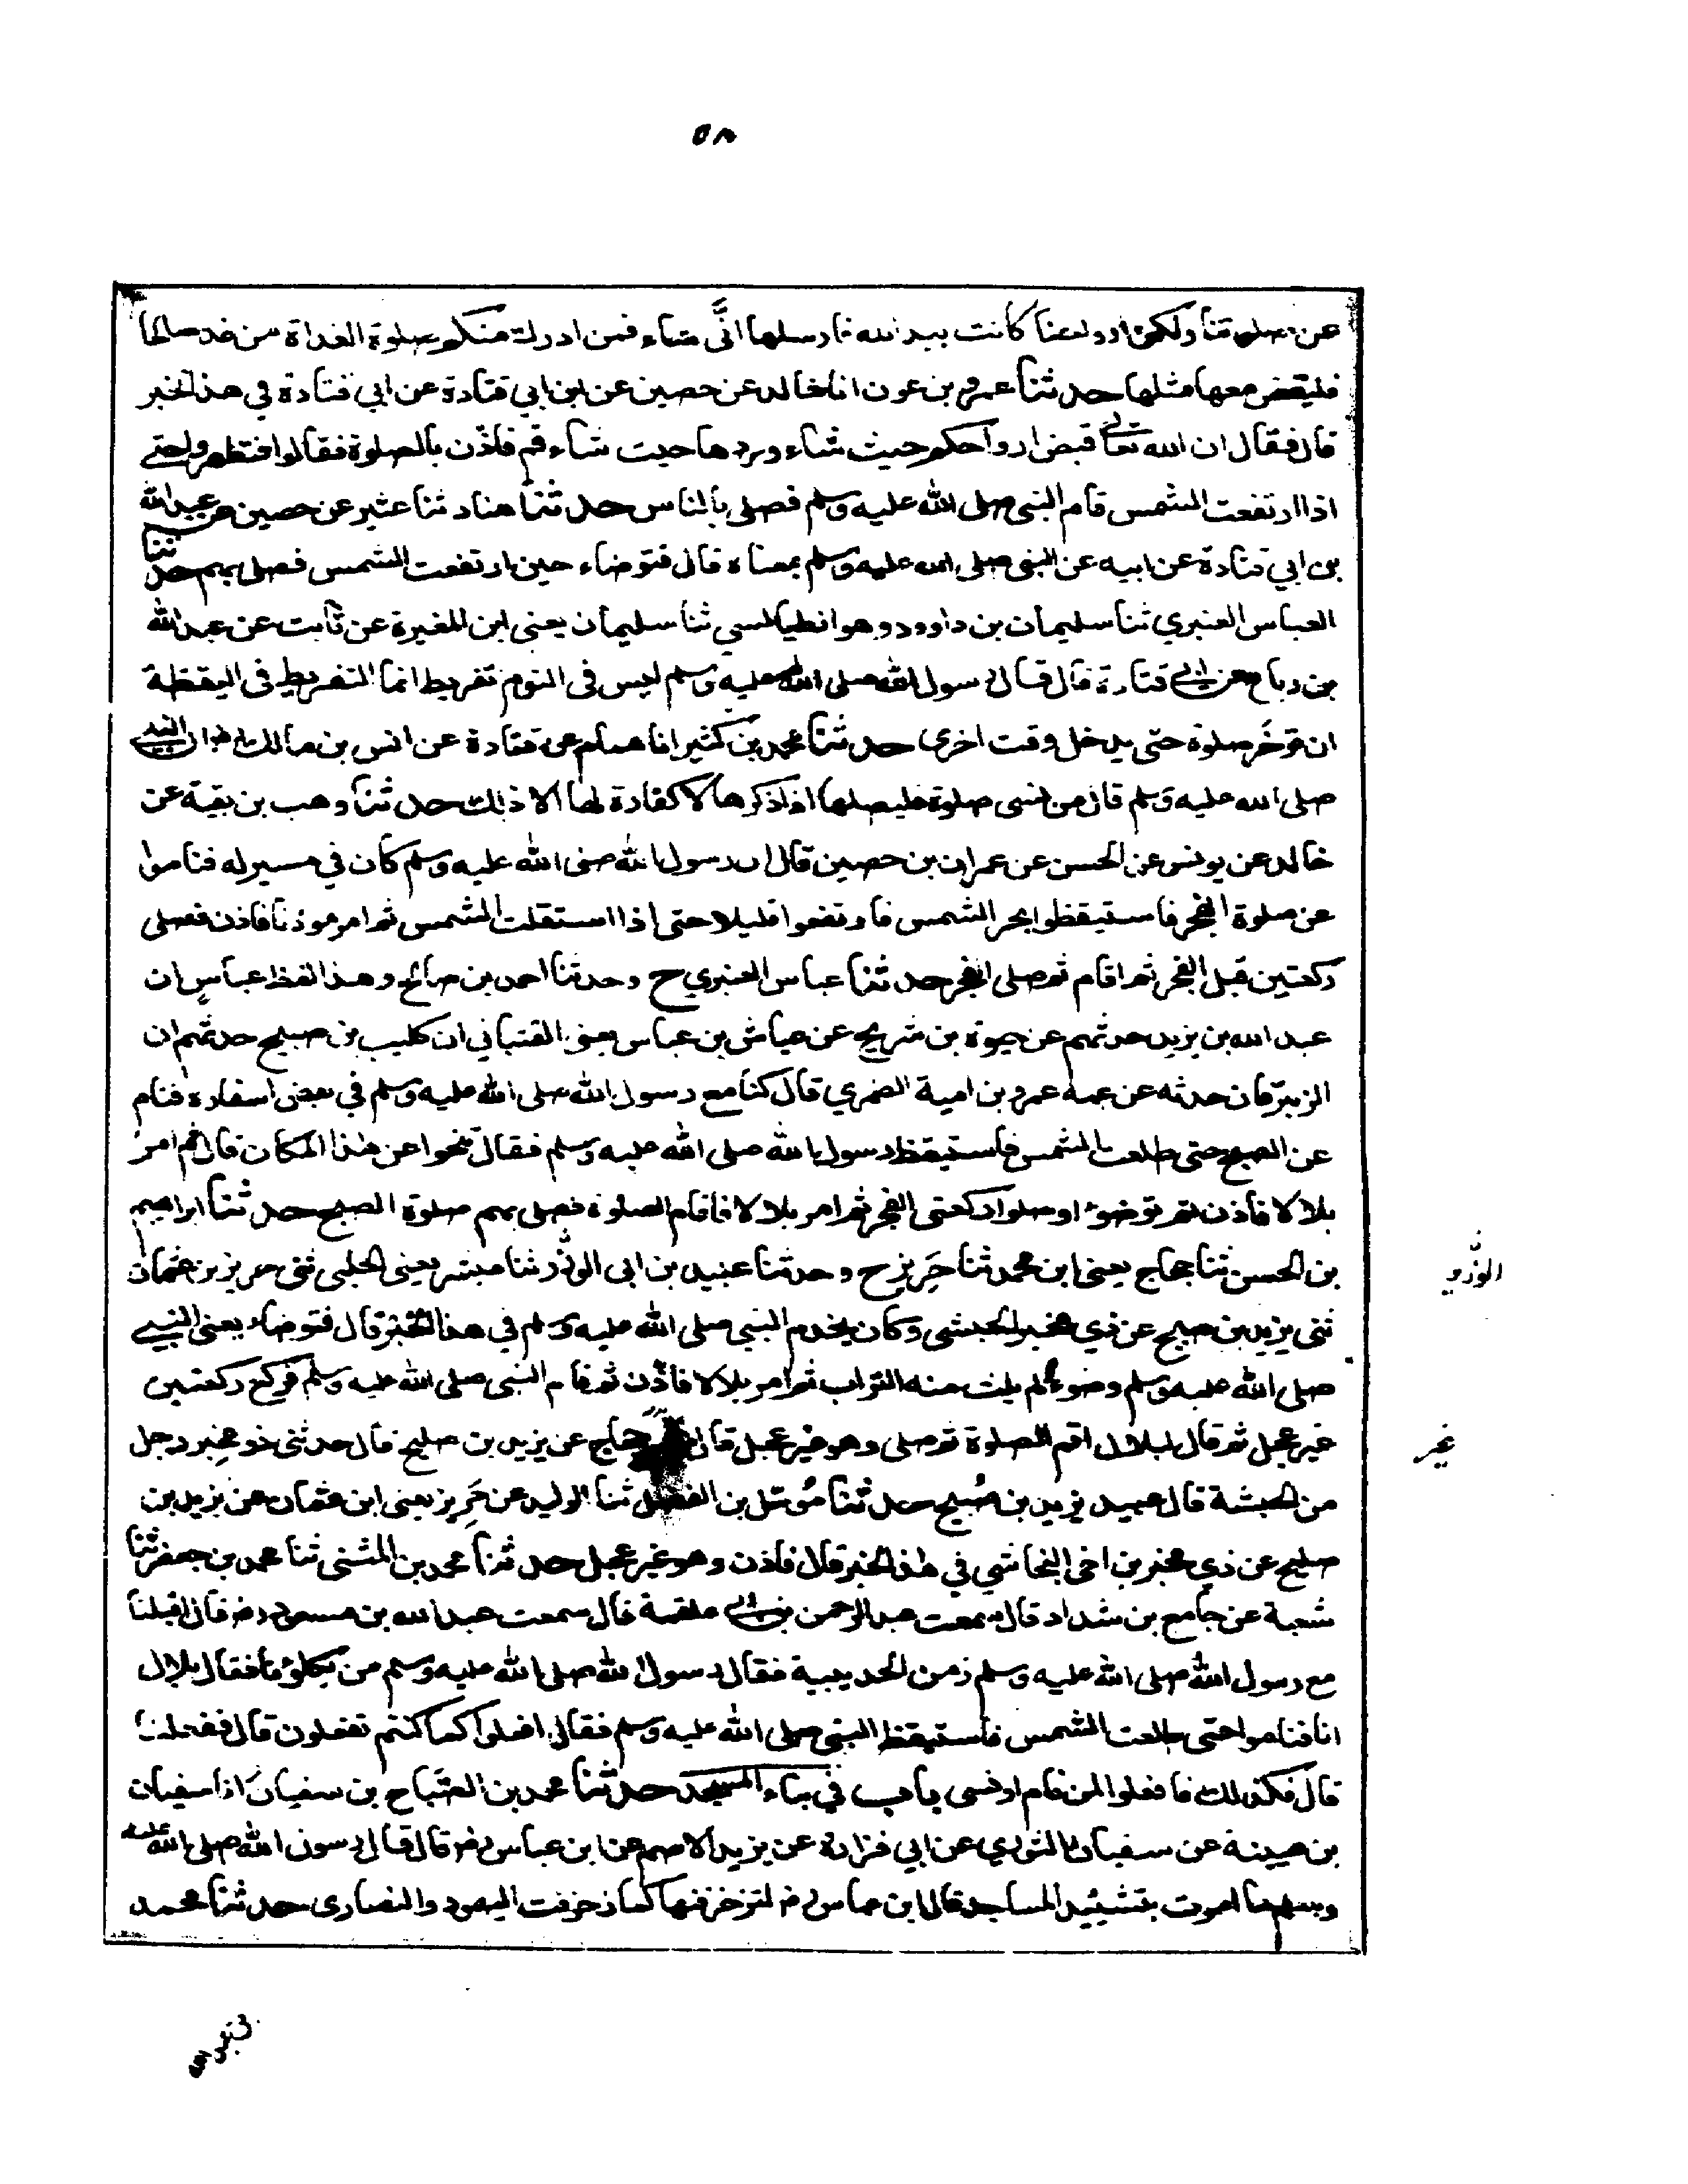 ٥٨
عن صلوتنا ولكن ارواحنا كانت بيد الله فارسلها انّٰى شاء فمن ادرك منكم صلوة الغداة من غد صالحا
فليقض معها مثلها حدثنا عمرو بن عون انا خالد عن حصين عن ابن ابي قتادة عن ابي قتادة في هذا الخبر
قال فقال ان الله تعالى قبض ارواحكم حيث شاء وردها حيث شاء قم فاذّن بالصلوة فقاموا فتطهروا حتى
اذا ارتفعت الشمس قام النبي صلى الله عليه وسلم فصلى بالناس حدثنا هناد ثنا عبثر عن حصين عن عبد الله
بن ابي قتادة عن ابيه عن النبي صلى الله عليه وسلم بمعناه قال فتوضاء حين ارتفعت الشمس فصلى بهم حدثنا
العباس العنبري ثنا سليمان بن داوود وهو الطيالسي ثنا سليمان يعنى ابن المغيرة عن ثابت عن عبد الله
بن رباح عن ابي قتادة قال قال رسول الله صلى الله عليه وسلم ليس فى النوم تفريط انما التفريط فى اليقظة
ان توخَر صلوة حتى يدخل وقت اخرى حدثنا محمد بن كثير انا همام عن قتادة عن انس بن مالك ان النبي
صلى الله عليه وسلم قال من نسى صلوة فليصلها اذا ذكرها لا كفارة لها الا ذلك حدثنا وهب بن بقية عن
خالد عن يونس عن الحسن عن عمران بن حصين قال ان رسول الله صلى الله عليه وسلم كان في مسير له فناموا
عن صلوة الفجر فاستيقظوا بحر الشمس فارتفعوا قليلا حتى اذا استقلت الشمس ثم امر موذنا فاذن فصلى
ركعتين قبل الفجر ثم اقام ثم صلى الفجر حدثنا عباس العنبري ح وحدثنا احمد بن صالح وهذا لفظ عباس ان
عبد الله بن يزيد حدثهم عن حيوة بن شريح عن عياش بن عباس يعنى القتباني ان كليب بن صبيح حدثهم ان
الزبرقان حدثه عن عمه عمرو بن امية الضمري قال كنا مع رسول الله صلى الله عليه وسلم في بعض اسفاره فنام
عن الصبح حتى طلعت الشمس فاستيقظ رسول الله صلى الله عليه وسلم فقال تنحوا عن هذا المكان قال ثم امر
بلالا فاذن ثم توضؤا وصلوا ركعتى الفجر ثم امر بلالا فاقام الصلوة فصلى بهم صلوة الصبح حدثنا ابراهيم
بن الحسن ثنا حجاج يعنى ابن محمد ثنا حَرِيز ح وحدثنا عبيد بن ابى الوزّر ثنا مبشر يعنى الحلبى ثنى حريز بن عثمان
ثنى يزيد بن صبيح عن ذي مخبر الحبشى وكان يخدم النبي صلى الله عليه وسلم في هذا الخبر قال فتوضاء يعنى النبي
صلى الله عليه وسلم وضوءً لم يلث منه التراب ثم امر بلالا فاذّن ثم قام النبى صلى الله عليه وسلم فركع ركعتين
غير عجل ثم قال لبلال اقم الصلوة ثم صلى وهو غير عجل قال حجاج عن يزيد بن صليح قال حدثنى ذو مخبر رجل
من الحبشة قال عبيد يزيد بن صُبيح حدثنا مُوئمل بن الفضل ثنا الوليد عن حَرِيز يعنى ابن عثمان عن يزيد بن
صليح عن ذي مخبر بن اخى النجاشي في هذا الخبر قال فاذن وهو غير عجل حدثنا محمد بن المثنى ثنا محمد بن جعفر ثنا
شعبة عن جامع بن شداد قال سمعت عبد الرحمن بن ابي علقمة قال سمعت عبد الله بن مسعود رض قال اقبلنا
مع رسول الله صلى الله عليه وسلم زمن الحديبية فقال رسول الله صلى الله عليه وسلم من يكلؤنا فقال بلال
انا فناموا حتى طلعت الشمس فاستيقظ النبي صلى الله عليه وسلم فقال افعلوا كما كنتم تفعلون قال ففعلنا
قال فكذلك فافعلوا لمن نام او نسى باب في بناء المسجد حدثنا محمد بن الصبّاح بن سفيان انا سفيان
بن عيينة عن سفيان الثوري عن ابي فزارة عن يزيد الاصم عن ابن عباس رض قال قال رسول الله صلى الله عليه
وسلم ما امرت بتشييد المساجد قال ابن عباس رض لتزخرفنها كما زخرفت اليهود والنصارى حدثنا محمد
الوزّر
غير